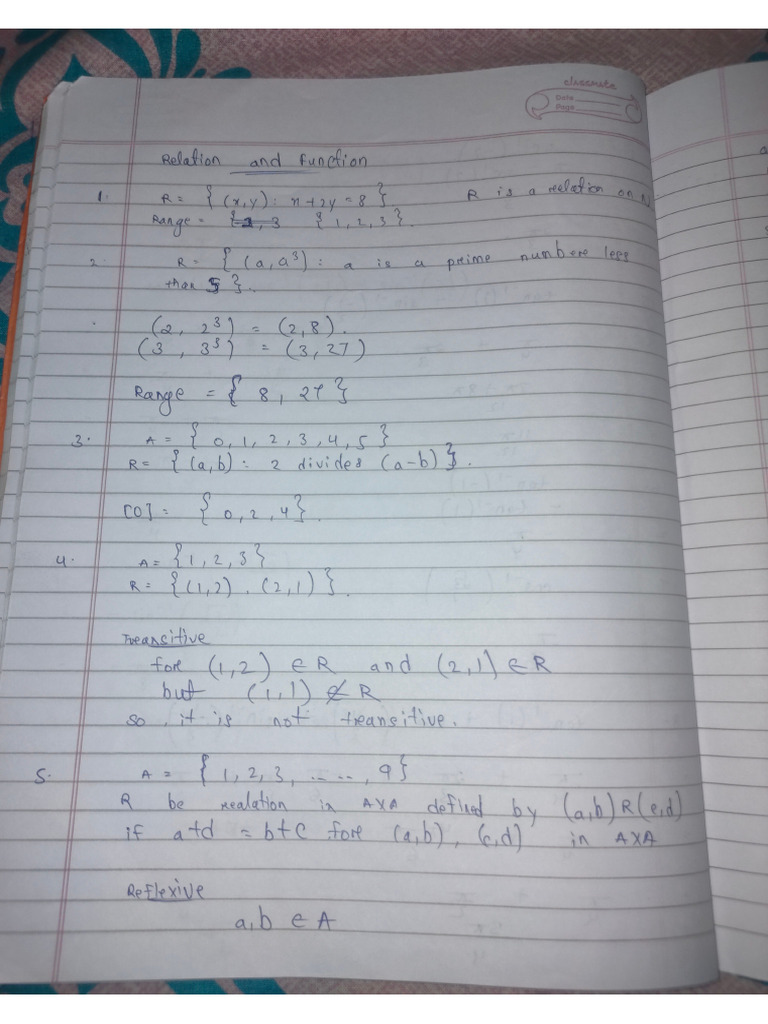 classmate
Date
Page
Relation and function
1. R = { (x,y) : x+2y = 8 } R is a relation on N
Range = {1, 3 {1, 2, 3}.
2. R = { (a, a³) : a is a prime number less
than 5 }.
(2, 2³) = (2,8).
(3, 3³) = (3, 27)
Range = { 8, 27 }
3. A = { 0, 1, 2, 3, 4, 5 }
R = { (a,b) : 2 divides (a-b) }.
[0] = { 0, 2, 4 }.
4. A = {1, 2, 3}
R = {(1,2), (2,1)}.
Transitive
for (1,2) ∈ R and (2,1) ∈ R
but (1,1) ∉ R
so, it is not transitive.
5. A = { 1, 2, 3, ....., 9}
R be realation in A×A defined by (a,b) R (c,d)
if a+d = b+c for (a,b), (c,d) in A×A
Reflexive
a,b ∈ A